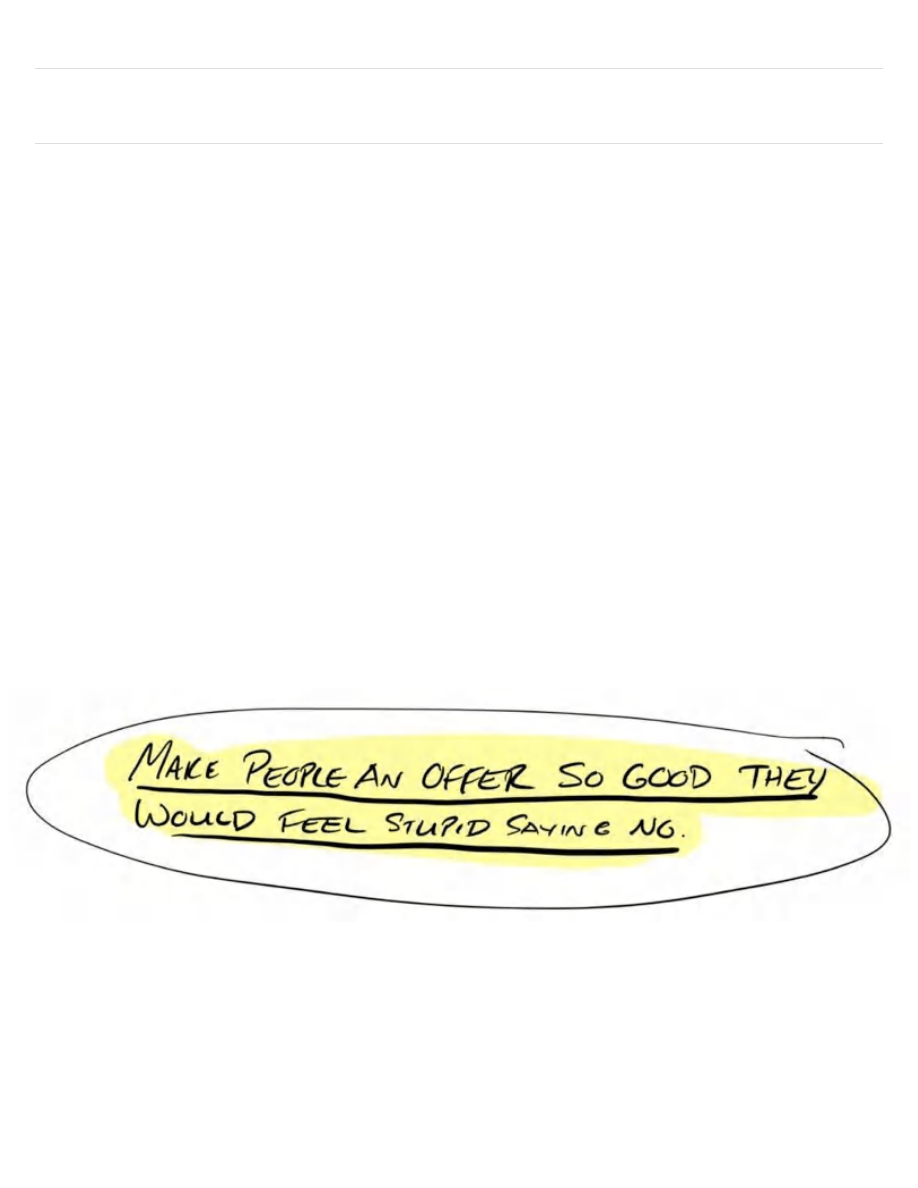 MAKE PEOPLE AN OFFER SO GOOD THEY
WOULD FEEL STUPID SAYING NO.